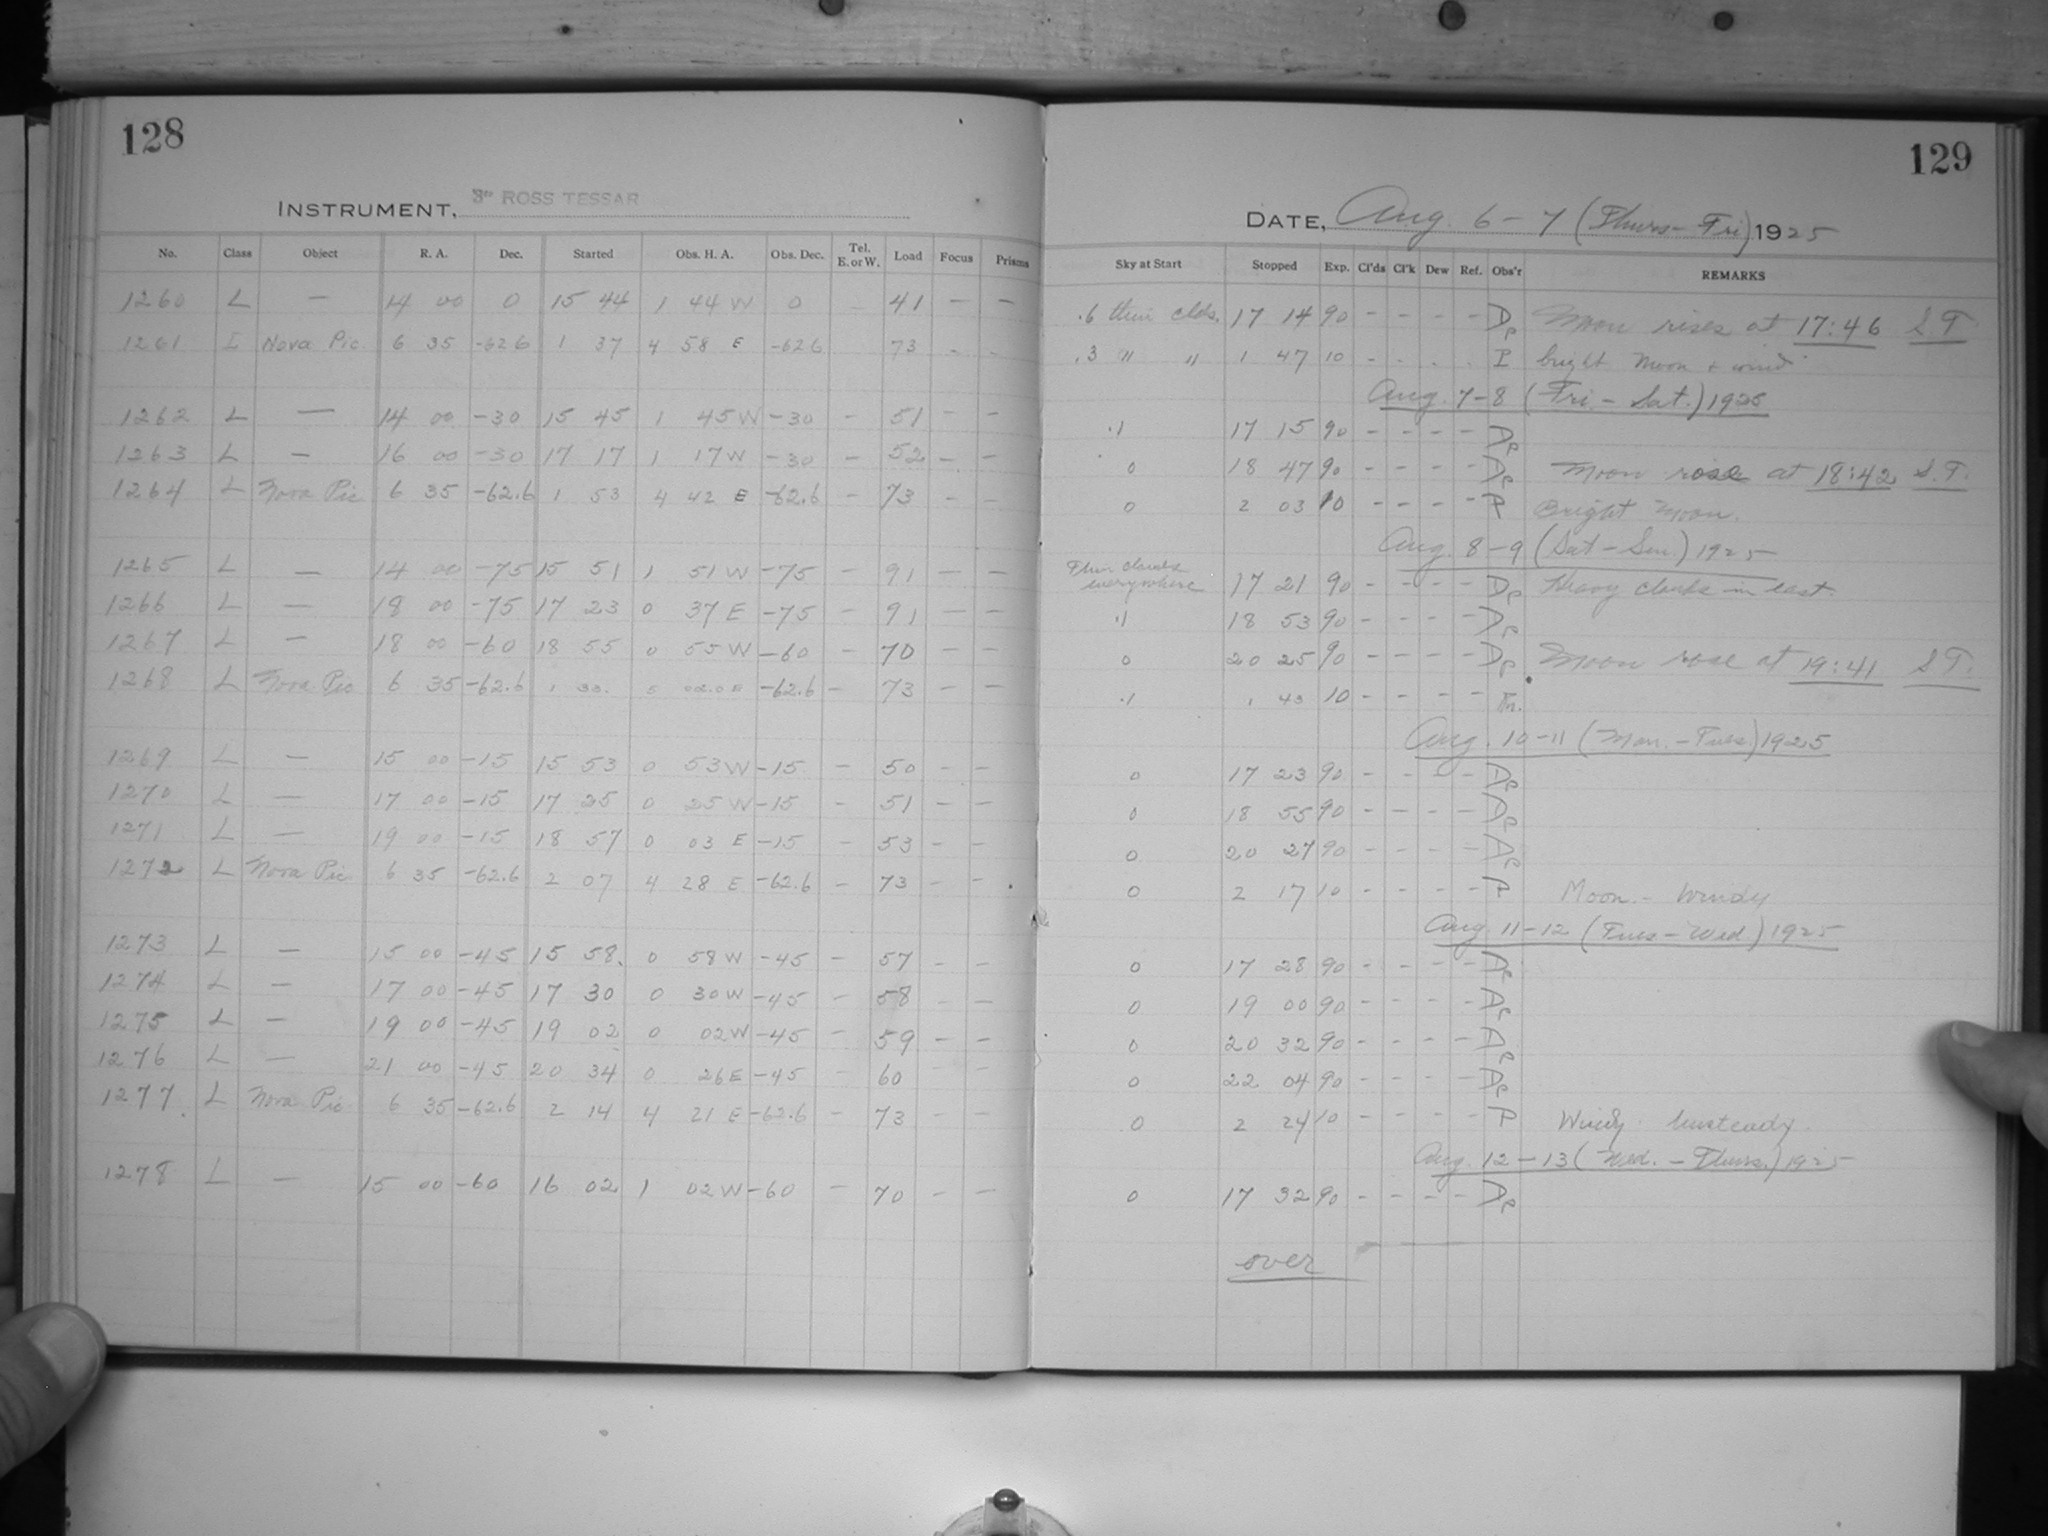 128
129
INSTRUMENT, 3" ROSS TESSAR
DATE, Aug. 6-7 (Thurs-Fri) 1925
No. Class Object R. A. Dec. Started Obs. H. A. Obs. Dec. Tel. E. or W. Load Focus Prisms Sky at Start Stopped Exp. Cl'ds Cl'k Dew Ref. Obs'r REMARKS
1260 L — 14 00 0 15 44 1 44 W 0 41 — — .6 thin clds. 17 14 90 - - - - Moon rises at 17:46 S.T
1261 I Nova Pic 6 35 -62.6 1 37 4 58 E -62.6 73 - - .3 " " 1 47 10 - - . . I bright moon + wind
Aug. 7-8 (Fri - Sat.) 1925
1262 L — 14 00 -30 15 45 1 45 W -30 - 51 - - .1 17 15 90 - - - -
1263 L — 16 00 -30 17 17 1 17 W -30 - 52 - - 0 18 47 90 - - - - Moon rose at 18:42 S.T.
1264 L Nova Pic 6 35 -62.6 1 53 4 42 E -62.6 - 73 - - 0 2 03 10 - - - - Bright Moon.
Aug. 8-9 (Sat - Sun.) 1925
1265 L — 14 00 -75 15 51 1 51 W -75 - 91 - - Thin clouds everywhere 17 21 90 - - - - Heavy clouds in east
1266 L — 18 00 -75 17 23 0 37 E -75 - 91 - - .1 18 53 90 - - - -
1267 L — 18 00 -60 18 55 0 55 W -60 - 70 - - 0 20 25 90 - - - - Moon rose at 19:41 S.T.
1268 L Nova Pic 6 35 -62.6 1 33. 5 02.0 E -62.6 - 73 - - .1 1 43 10 - - - -
Aug. 10-11 (Mon. - Tues.) 1925
1269 L — 15 00 -15 15 53 0 53 W -15 - 50 - - 0 17 23 90 - - - -
1270 L — 17 00 -15 17 25 0 25 W -15 - 51 - - 0 18 55 90 - - - -
1271 L — 19 00 -15 18 57 0 03 E -15 - 53 - - 0 20 27 90 - - - -
1272 L Nova Pic 6 35 -62.6 2 07 4 28 E -62.6 - 73 - - 0 2 17 10 - - - - Moon - Windy
Aug. 11-12 (Tues - Wed) 1925
1273 L — 15 00 -45 15 58. 0 58 W -45 - 57 - - 0 17 28 90 - - - -
1274 L — 17 00 -45 17 30 0 30 W -45 - 58 - - 0 19 00 90 - - - -
1275 L — 19 00 -45 19 02 0 02 W -45 - 59 - - 0 20 32 90 - - - -
1276 L — 21 00 -45 20 34 0 26 E -45 60 - - 0 22 04 90 - - - -
1277. L Nova Pic 6 35 -62.6 2 14 4 21 E -62.6 - 73 - - 0 2 24 10 - - - - Windy. Unsteady.
Aug. 12-13 (Wed. - Thurs.) 1925
1278 L — 15 00 -60 16 02 1 02 W -60 - 70 - - 0 17 32 90 - - - -
over